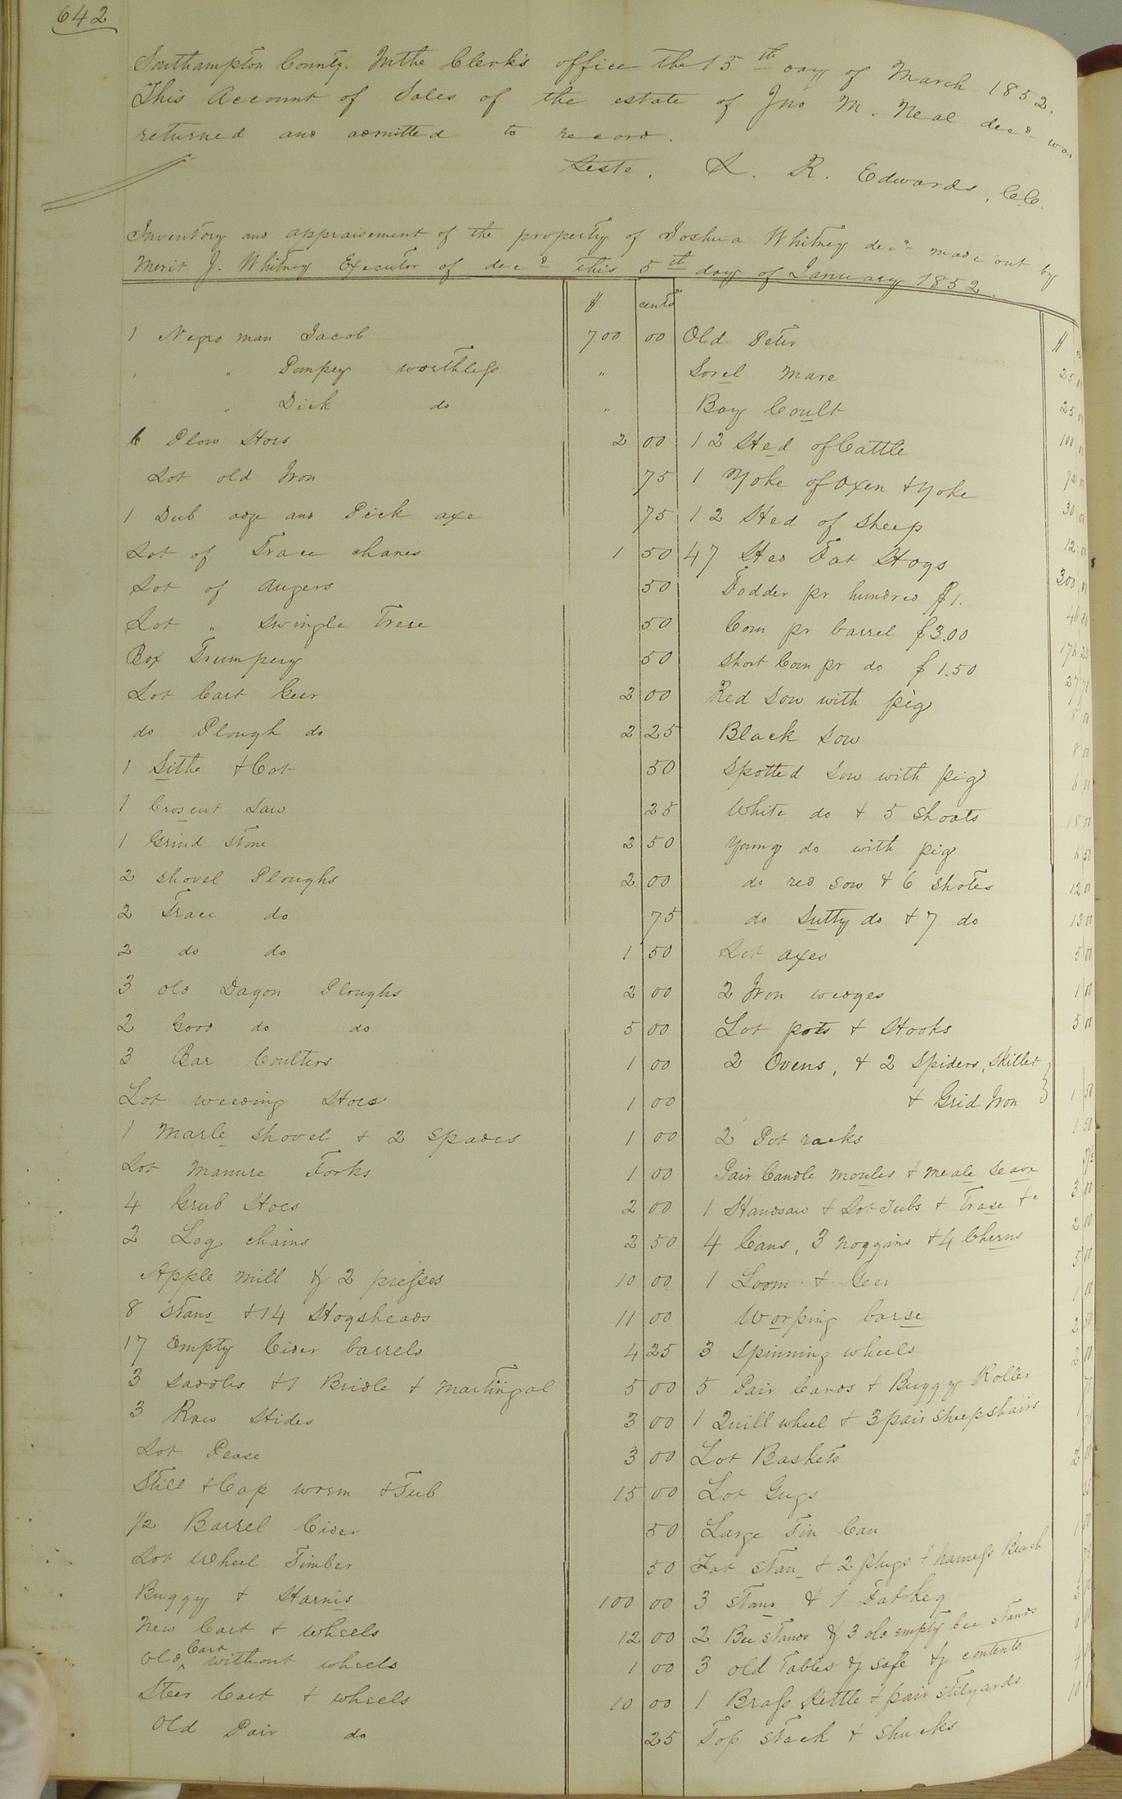 642
Southampton County. In the Clerk's office the 15th day of March 1852.
This Account of Sales of the estate of Jno M. Neal decd was
returned and admitted to record.
Teste, L. R. Edwards, C.C.
Inventory and appraisement of the property of Joshua Whitney decd made out by
Merit J. Whitney Executor of decd this 5th day of January 1852.
$ cents
1 Negro man Jacob 700 00
" " Pompey worthless "
" Dick do "
6 Plow Hoes 2 00
Lot old Iron 75
1 Dub adze and Pick axe 75
Lot of Trace chanes 1 50
Lot of Augers 50
Lot " Swingle Trese 50
Box Trumpery 50
Lot Cart Geer 2 00
do Plough do 2 25
1 Sithe + Cot 50
1 Croscut Saw 25
1 Grind Stone 2 50
2 shovel Ploughs 2 00
2 Trace do 75
2 do do 1 50
3 old Dagon Ploughs 2 00
2 Good do do 5 00
3 Bar Coulters 1 00
Lot weeding Hoes 1 00
1 Marle shovel + 2 Spades 1 00
Lot Manure Forks 1 00
4 Grub Hoes 2 00
2 Log chains 2 50
Apple Mill & 2 presses 10 00
8 Stans + 14 Hogsheads 11 00
17 Empty Cider barrels 4 25
3 Saddles + 1 Bridle + Martingal 5 00
3 Raw Hides 3 00
Lot Pease 3 00
Still + Cap worm + Tub 15 00
1/2 Barrel Cider 50
Lot Wheel Timber 50
Buggy + Harnis 100 00
New Cart + Wheels 12 00
Old Cart without wheels 1 00
Steer Cart + wheels 10 00
Old Pair do 25
$
Old Peter 25 00
Sorel Mare 25 00
Bay Coult 100
12 Hed of Cattle
1 Yoke of Oxen + Yoke 30
12 Hed of Sheep 12
47 Hed Fat Hogs 300
Fodder pr hundred $1.
Corn pr barrel $3.00
Short Corn pr do $1.50
Red Sow with pig
Black Sow
Spotted Sow with pig
White do + 5 Shoats
Young do with pig
do red sow + 6 Shotes 12 00
do Sutty do + 7 do 13 00
Lot axes 5 00
2 Iron wedges 1 00
Lot pots + Hooks 5 00
2 Ovens, + 2 Spiders, Skillet
+ Grid Iron 1 50
2 Pot racks 1 50
Pair Candle moules + Meale Seave
1 Handsaw + Lot Tubs + Trase +c
4 Cans, 3 Noggins + 4 Cherns
1 Loom + Geer
Worping barse
3 Spinning wheels
5 Pair Cards + Buggy Roller
1 Quill wheel + 3 pair sheep shairs
Lot Baskets
Lot Gugs
Large Tin Can
Fat Stan + 2 plugs + harness Bench
3 Stans & 1 Fat keg
2 Bee Stands & 3 old empty bee stands
3 old Tables & safe & contents
1 Brass Kettle + pair Stilyards
Top Stack + Shucks